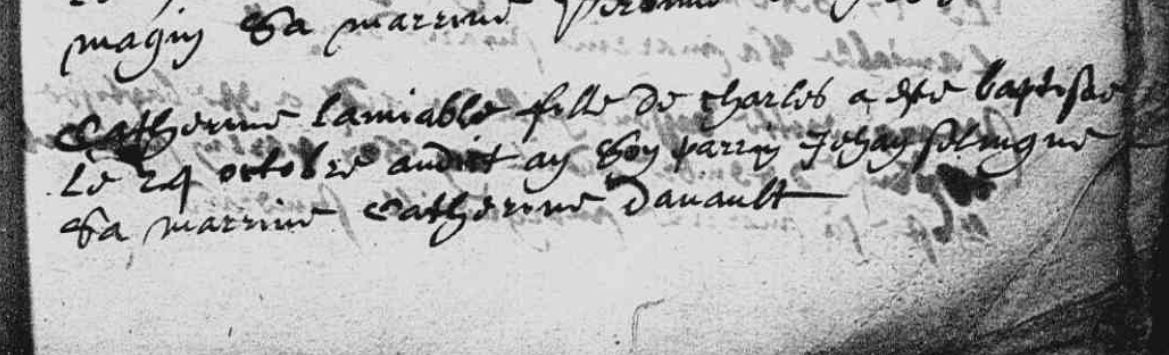 magin sa marrine
Catherine lamiable fille de charles a este baptisee
le 24 octobre audict an son parrin Jehan
sa marrine Catherine Davault